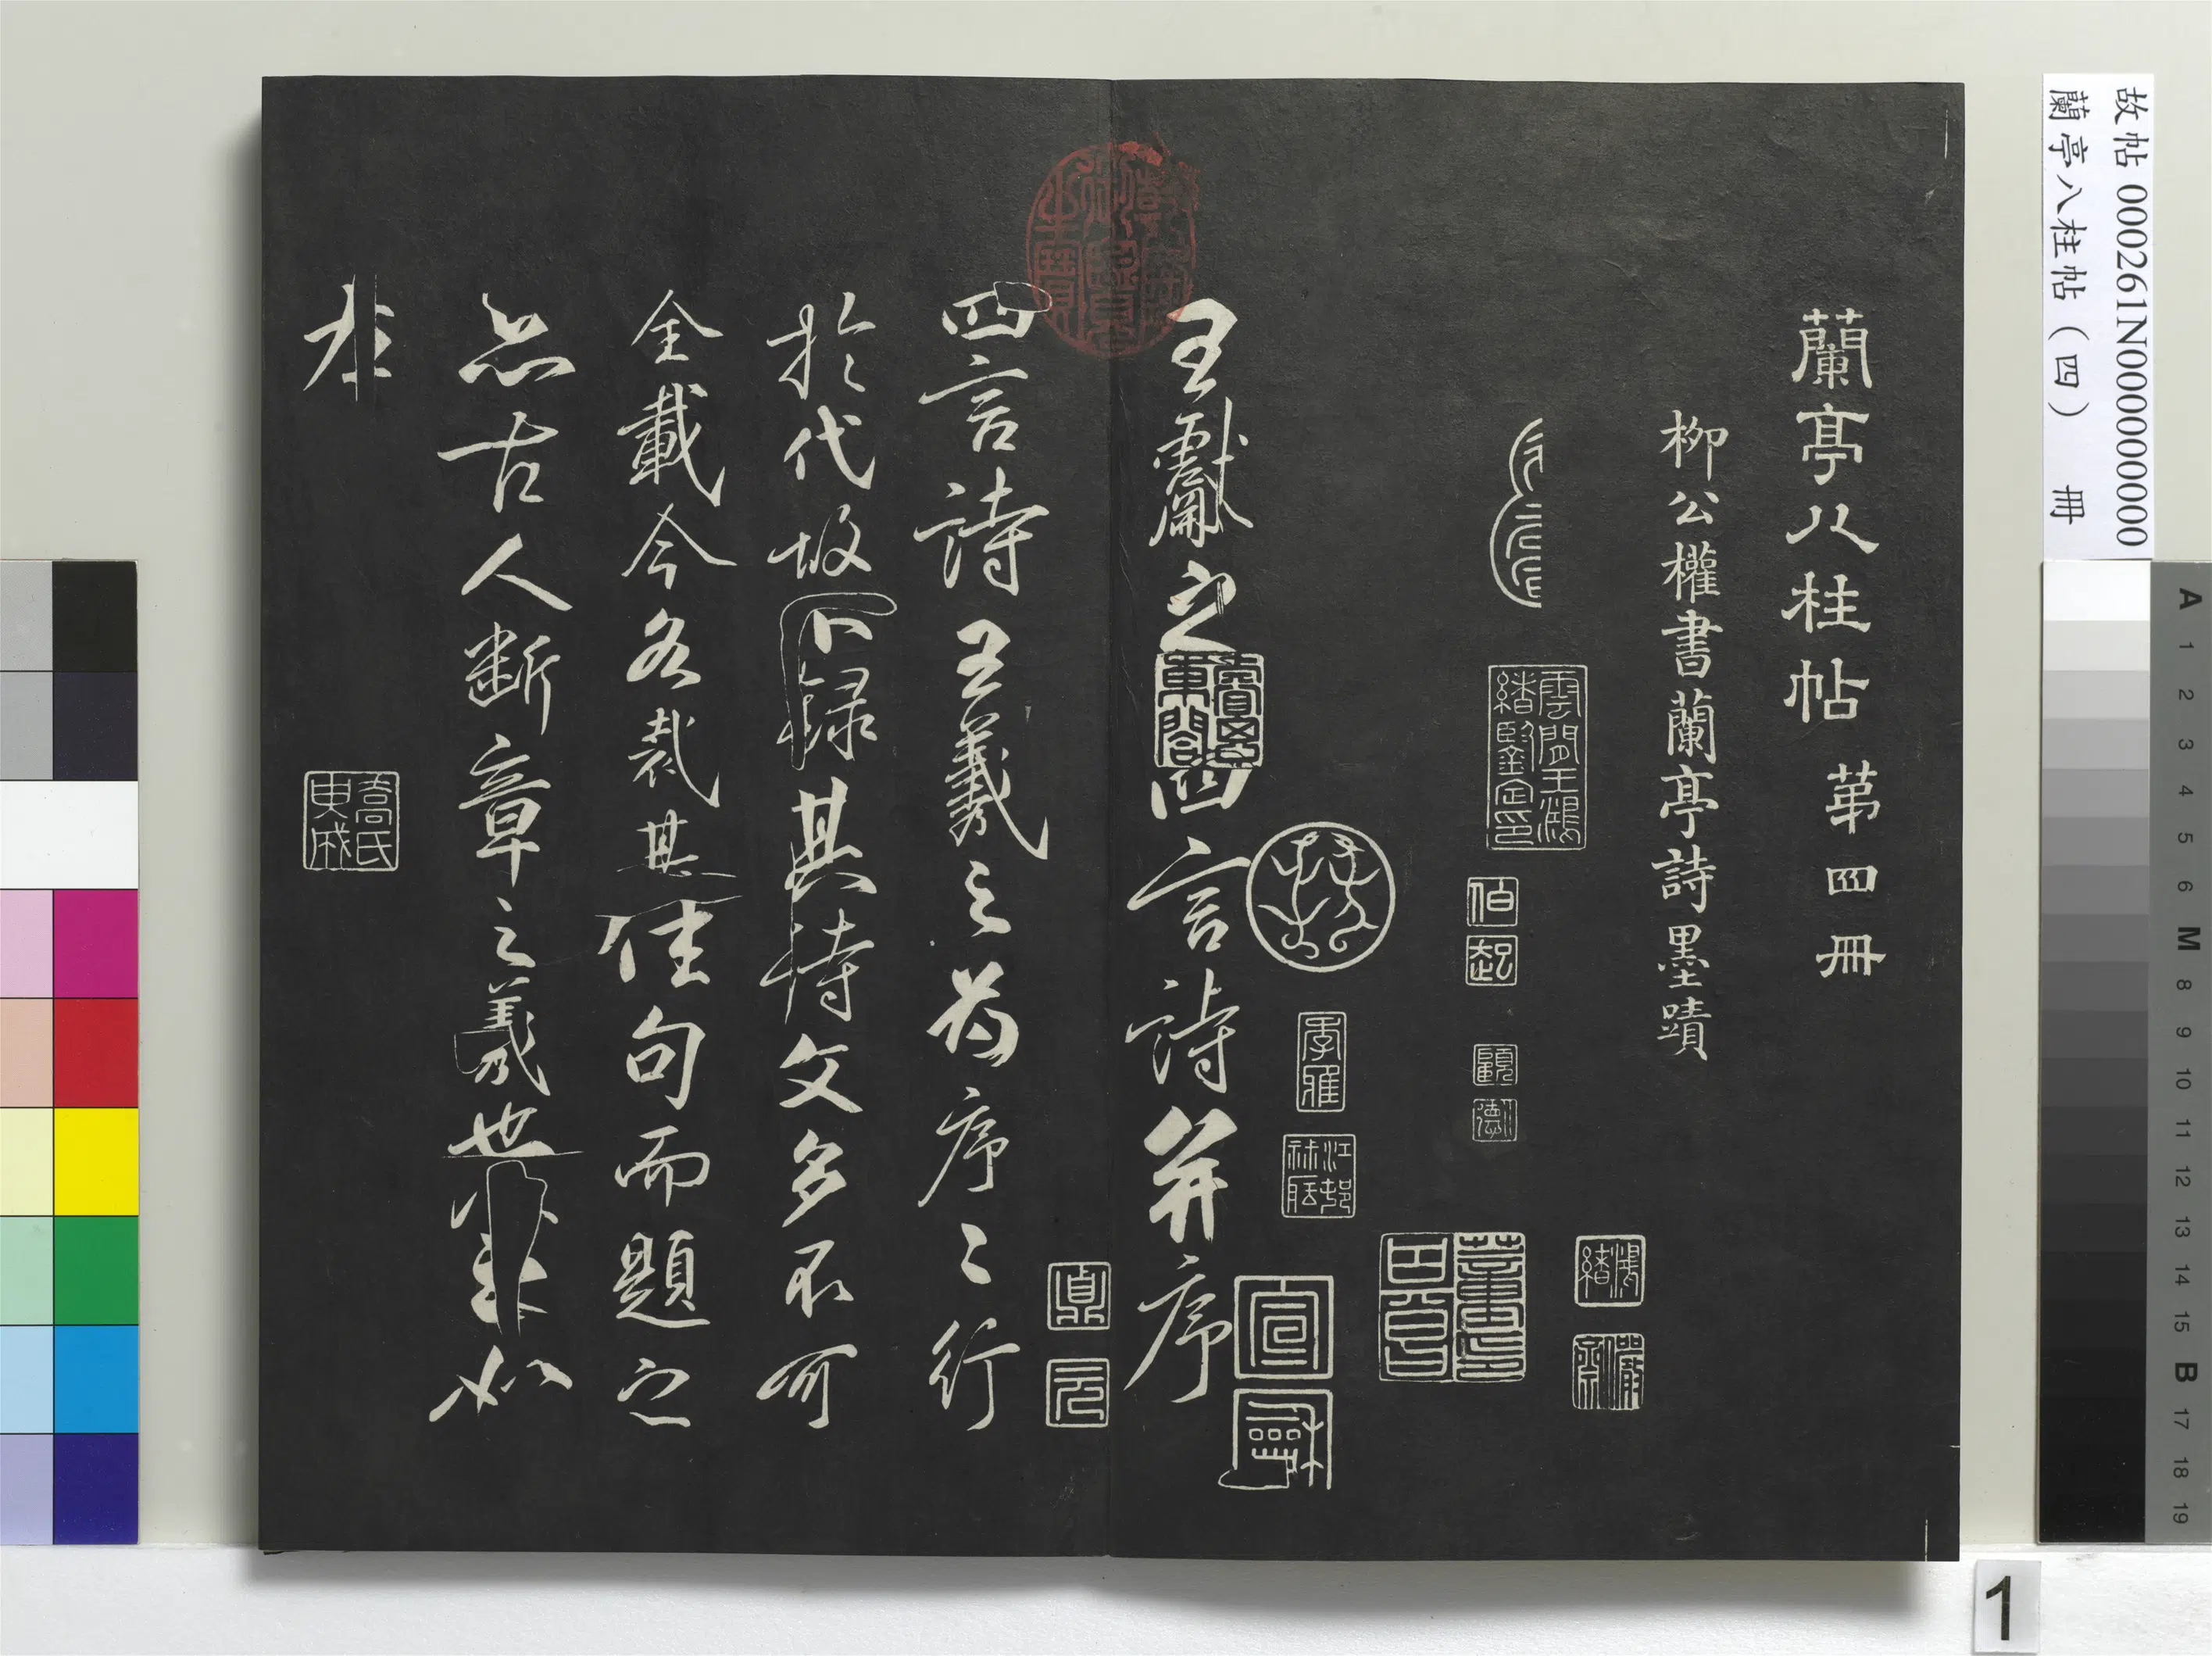 故帖 000261N000000000
蘭亭八柱帖（四） 冊
蘭亭八柱帖 第四冊
柳公權書蘭亭詩墨蹟
雲間王鴻
緒鑒定印
伯
起
季雅
宣
龢
王獻之四言詩并序
貞
元
四言詩王羲之為序序行
於代故不錄其詩文多不可
全載今各裁其佳句而題之
亦古人斷章之義也
1
A 1 2 3 4 5 6 M 8 9 10 11 12 13 14 15 B 17 18 19